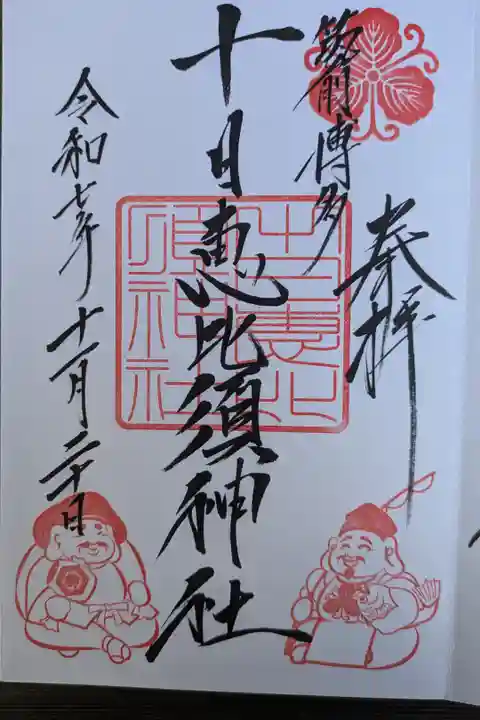 奉拝
筑前博多
十日恵比須神社
十日恵比須神社
令和七年十一月二十日